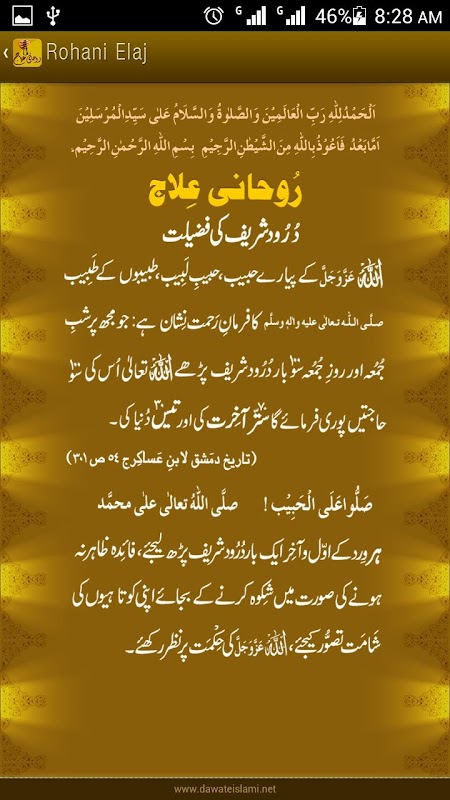 46% 8:28 AM
Rohani Elaj
اَلْحَمْدُلِلّٰهِ رَبِّ الْعَالَمِيْنَ وَالصَّلٰوةُ وَالسَّلَامُ عَلٰى سَيِّدِالْمُرْسَلِيْنَ
اَمَّابَعْدُ فَاَعُوْذُبِاللّٰهِ مِنَ الشَّيْطٰنِ الرَّجِيْمِ بِسْمِ اللّٰهِ الرَّحْمٰنِ الرَّحِيْمِ.
رُوحانی عِلاج
دُرُود شریف کی فضیلت
اللہ عَزَّوَجَلَّ کے پیارے حبیب، حبیبِ لَبیب، طبیبوں کے طَبِیب
صلَّی اللہ تعالیٰ علیہ والہٖ وسلَّم کا فرمانِ رَحمت نِشان ہے: جو مجھ پر شبِ
جُمُعہ اور روزِ جُمُعہ سو ۱۰۰ بار دُرُود شریف پڑھے اللہ تعالیٰ اُس کی سو ۱۰۰
حاجتیں پوری فرمائے گا ستّر ۷۰ آخِرت کی اور تیس ۳۰ دُنیا کی۔
(تاریخ دمَشق لابنِ عَساکِر ج ۵۴ ص ۳۰۱)
صَلُّوا عَلَی الْحَبِیْب ! صلَّی اللہُ تعالٰی علٰی محمَّد
ہر وِرد کے اوّل و آخِر ایک بار دُرُود شریف پڑھ لیجئے، فائدہ ظاہر نہ
ہونے کی صورت میں شِکوہ کرنے کے بجائے اپنی کوتاہیوں کی
شامَت تصوُّر کیجئے، اللہ عَزَّوَجَلَّ کی حِکْمَت پر نظر رکھئے۔
www.dawateislami.net